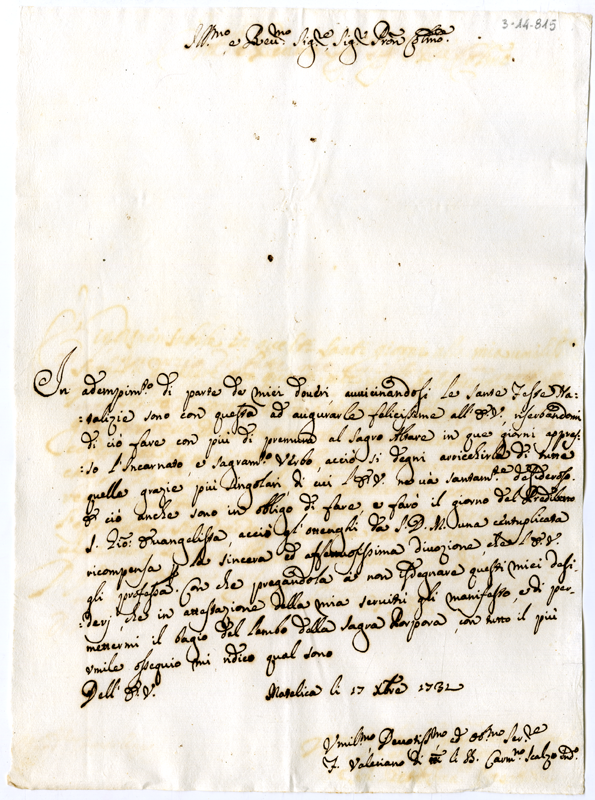 3-14-815
Ill.mo e Rev.mo Sig.re, Sig.r Pron Col.mo
In adempim.to di parte de miei doveri avvicinandosi le sante Feste Na-
:talizie sono con questa ad augurarle felicissime all' E.V. riserbandomi
di ciò fare con più di premura al Sagro Altare in que giorni appres-
:so l'Incarnato, e sagram.to Verbo, acciò si degni arricchirla di tutte
quelle grazie più singolari di cui l'E.V. ne và santam.te desiderosa.
E ciò anche sono in obligo di fare, e farò il giorno del
S. Gio: Evangelista, acciò gl'ottenghi da S.D.M. una centuplicata
ricompensa la sincera ed affettuosissima divozione, che a l'E.V.
gli professa. Con che pregandola a non isdegnare questi miei desi-
:derj, che in attestazione della mia servitù gli manifesto, e di per-
mettermi il bagio del lembo della sagra Porpora, con tutto il più
umile ossequio mi ridico qual sono
Dell' E.V.
Matelica li 17 Xbre 1732
Umil.mo Devotiss.mo ed Obb.mo Ser.re
F. Valeriano di li SS. Carm.no Scalzo